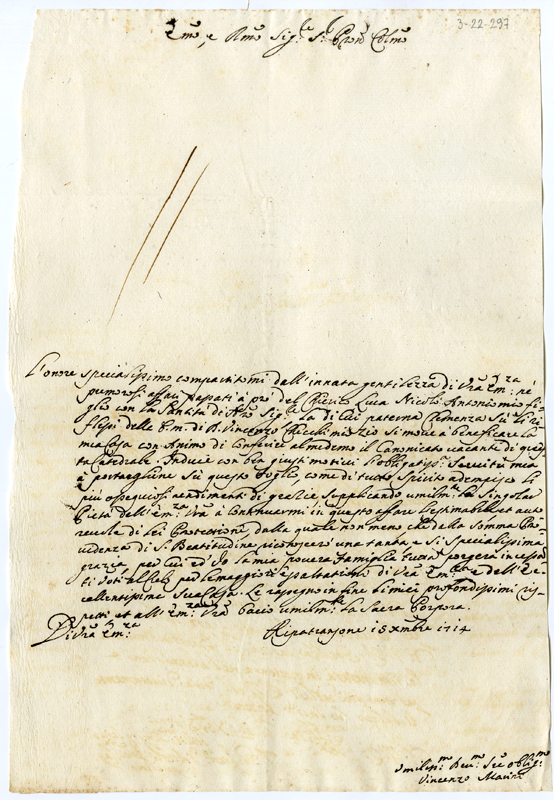 3-22-297
Emo, e Rmo Sig.r S.r Pron Colmo
L'onore specialissimo compartitomi dall'innata gentilezza di Vra Em:za ne
premurosi affari passati à pro del Chierico Luca Nicolò Antonio mio fi-
glio con la Santità di Nro Sig.re la di cui paterna Clemenza sù i ri-
flessi della b.m. di D. Vincenzo mio Zio si move à beneficare la
mia Casa con animo di conferire al medemo il Canonicato vacante di ques-
ta Catedrale. Induce con ben giusti motivi l'obligatiss.a servitù mia
à portargliene sù questo foglio, come di tutto spirito adempisco le
più ossequiosi rendimenti di grazie supplicando umilm.te la singolar
Pietà dell'Em:za Vra à continuarmi in questo affare l'estimabile et auto
revole di Lei Protezzione, dalla quale non meno che dalla somma Pro-
videnza di S. Beatitudine riconoscerò una tanta, e sì specialissima
grazza, per cui ed io, e la mia povera famiglia tutta porgerà incessan
ti voti al Cielo per le maggiori esaltationi di Vra Em:za e dell'Ec-
cellentissima Sua Casa. Le rassegno in fine li miei profondissimi ris-
petti et all'Em:za Vra bacio umilm.te la Sacra Porpora.
Di Vra Em:za
Ripatransone 18 Xmbre 1714
Umiliss.mo Dev.mo Ser.e oblig.mo
Vincenzo Marini